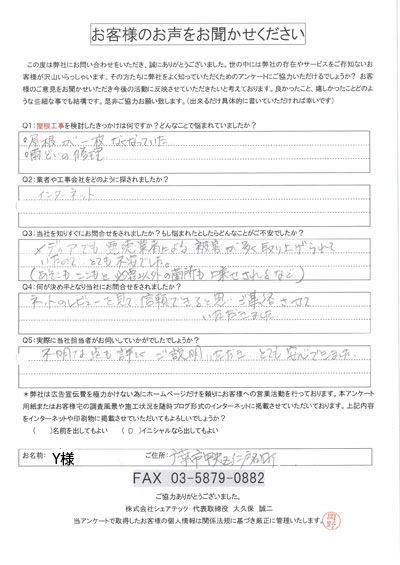 お客様のお声をお聞かせください
この度は弊社にお問い合わせをいただき、誠にありがとうございました。世の中には弊社の存在やサービスをご存知ないお
客様が沢山いらっしゃいます。その方たちに弊社をよく知っていただくためのアンケートにご協力いただけるでしょうか？ お客
様のご意見をお聞かせいただき今後の活動に反映させていただきたいと考えております。良かったこと、嬉しかったことどのよ
うな些細な事でも結構です。是非ご協力お願い致します。（出来るだけ具体的に書いていただければ幸いです）
Q1:屋根工事を検討したきっかけは何ですか？どんなことで悩まれていましたか？
・屋根が一枚なくなっていた
・雨どいの修理
Q2:業者や工事会社をどのように探されましたか？
インターネット
Q3:当社を知りすぐにお問合せをされましたか？もし悩まれたとしたらどんなことがご不安でしたか？
メディアでも悪徳業者による被害が多く取り上げられて
いたので とても不安でした。
(あそこもここもと必要以外の箇所も上乗せされるなど)
Q4:何が決め手となり当社にお問合せをされましたか？
ネットのレビューを見て信頼できると思い ご連絡させて
いただきました
Q5:実際に当社担当者がお伺いしていかがでしたでしょうか？
不明な点も詳しくご説明いただき とても安心できました。
＊弊社は広告宣伝費を極力かけない為にホームページだけを頼りにお客様への営業活動を行っております。本アンケート
用紙またはお客様宅の調査風景や施工状況を随時ブログ形式のインターネットに掲載させていただいております。上記内容
をインターネットや印刷物に掲載させていただいてもよろしいでしょうか？
（　）名前を出してもよい （○）イニシャルなら出してもよい
お名前: Y様 ご住所: 千葉市中央区仁戸名町
FAX 03-5879-0882
ご協力ありがとうございました。
株式会社シェアテック 代表取締役 大久保 誠二
当アンケートで取得したお客様の個人情報は関係法規に基づき厳正に管理いたします。